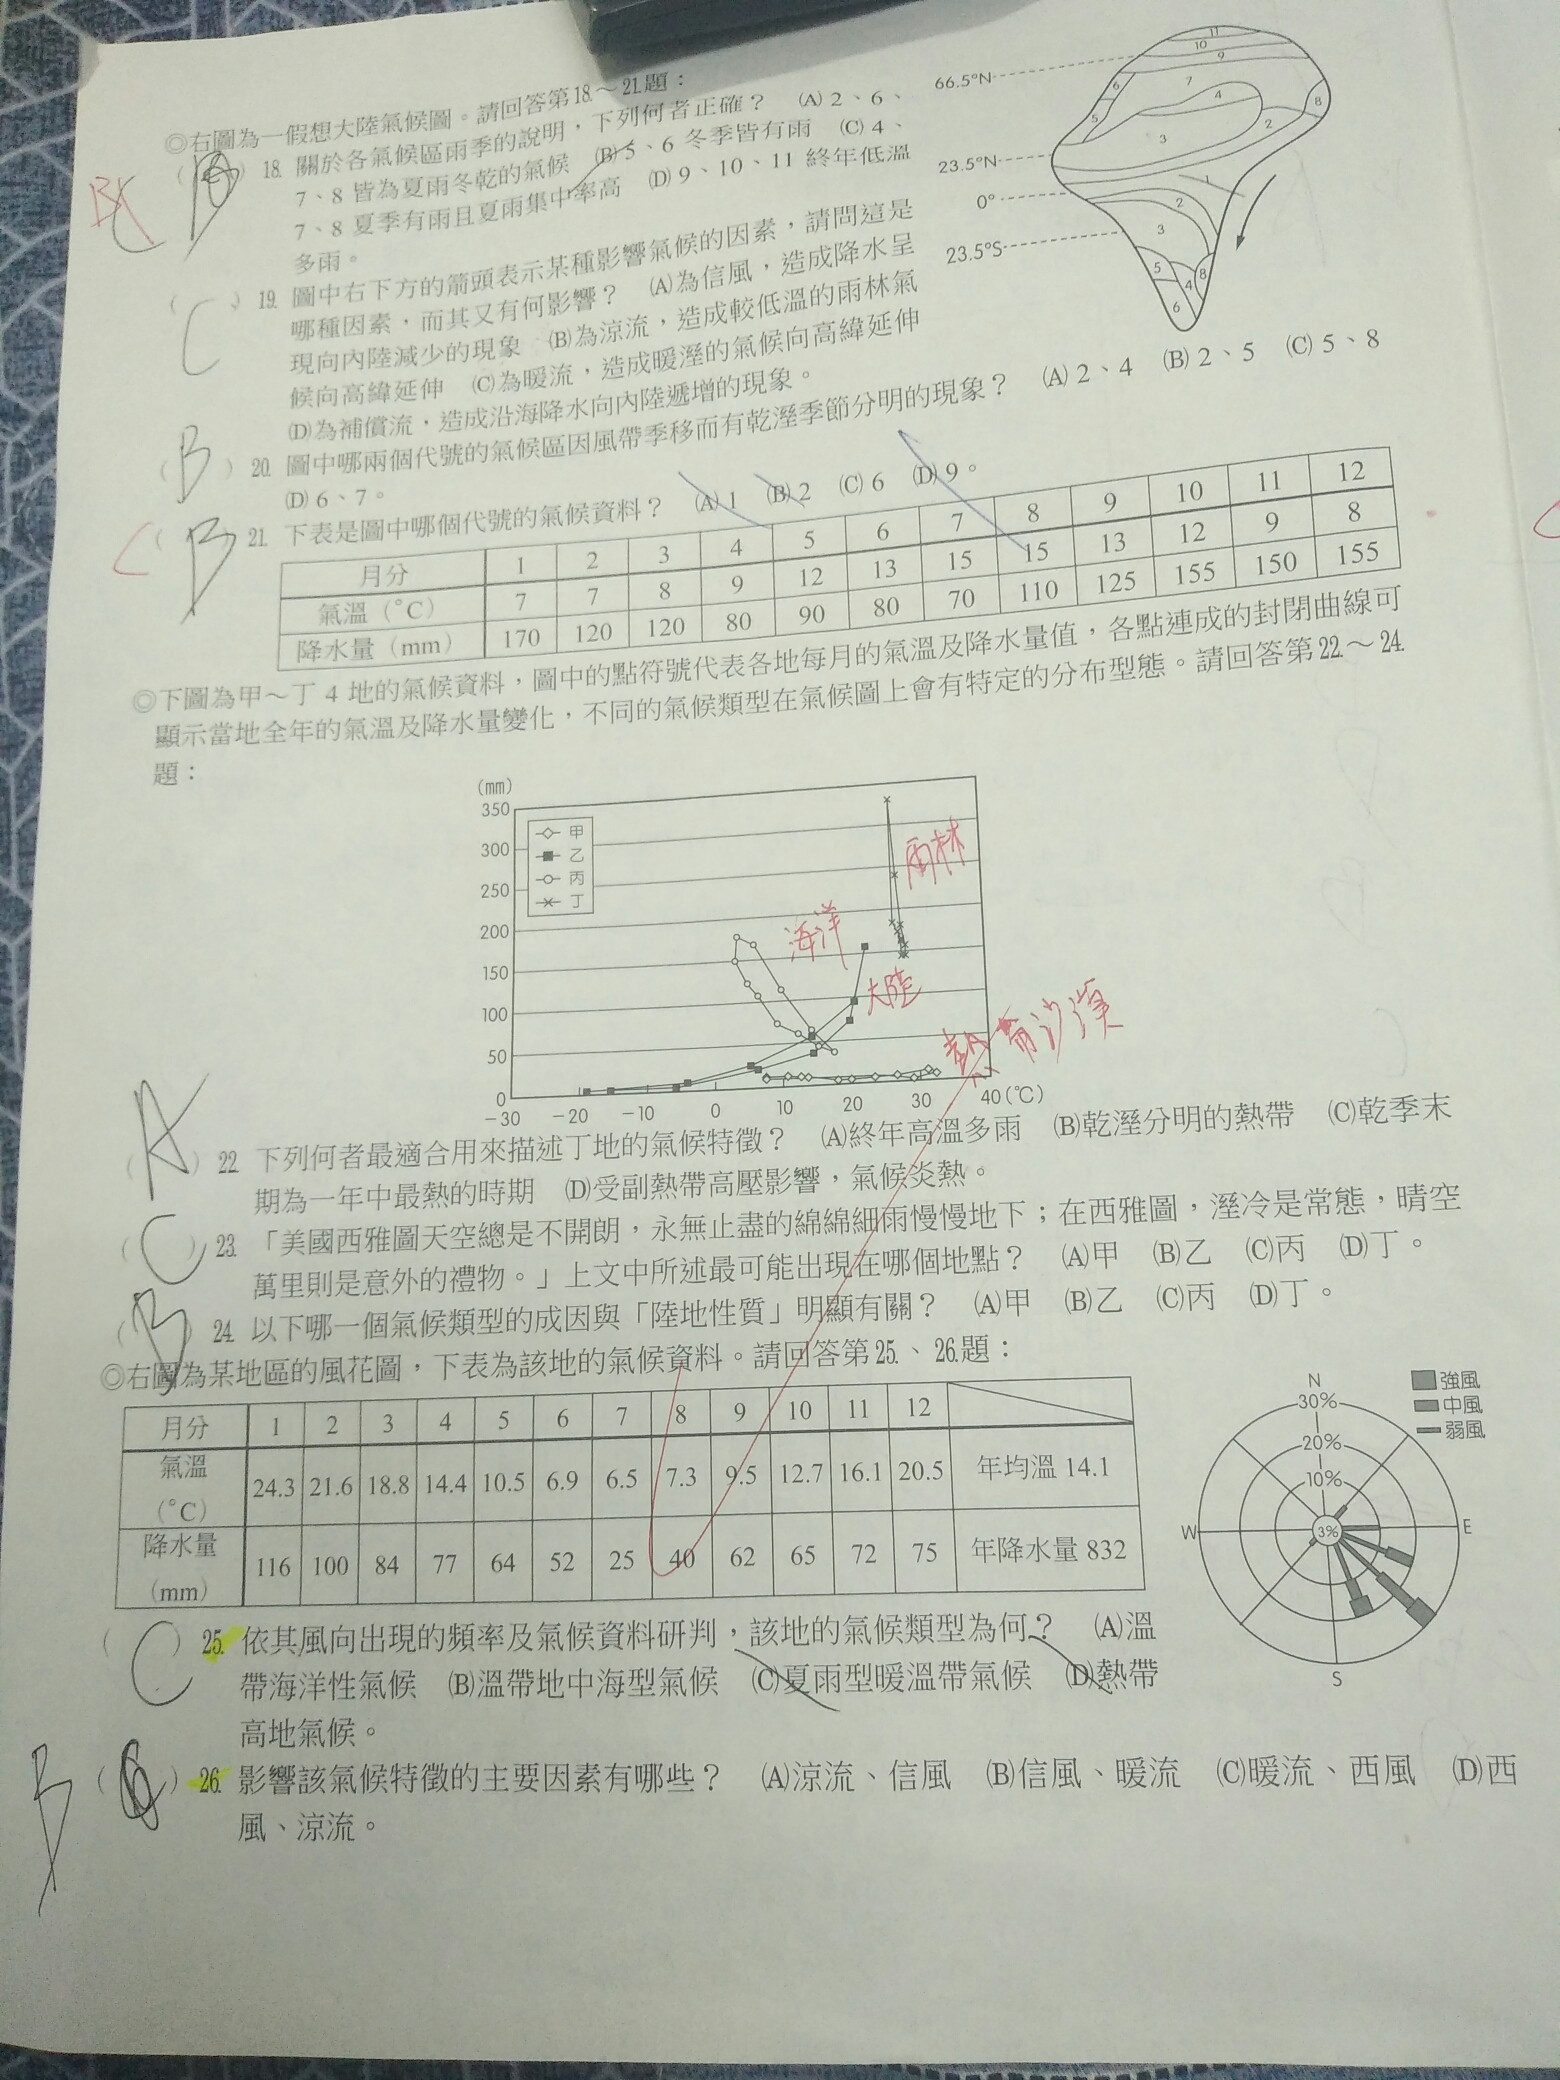 ◎右圖為一假想大陸氣候圖。請回答第18.～21.題：
18. 關於各氣候區雨季的說明，下列何者正確？ (A) 2、6、
7、8 皆為夏雨冬乾的氣候 (B) 5、6 冬季皆有雨 (C) 4、
7、8 夏季有雨且夏雨集中率高 (D) 9、10、11 終年低溫
多雨。
BC
66.5°N
23.5°N
0°
23.5°S
11
10
9
6
7
4
8
5
3
2
1
2
3
5
8
4
6
( C ) 19. 圖中右下方的箭頭表示某種影響氣候的因素，請問這是
哪種因素，而其又有何影響？ (A)為信風，造成降水呈
現向內陸減少的現象 (B)為涼流，造成較低溫的雨林氣
候向高緯延伸 (C)為暖流，造成暖溼的氣候向高緯延伸
(D)為補償流，造成沿海降水向內陸遞增的現象。
( B ) 20. 圖中哪兩個代號的氣候區因風帶季移而有乾溼季節分明的現象？ (A) 2、4 (B) 2、5 (C) 5、8
(D) 6、7。
C ( B 21. 下表是圖中哪個代號的氣候資料？ (A) 1 (B) 2 (C) 6 (D) 9。
月分 1 2 3 4 5 6 7 8 9 10 11 12
氣溫（°C） 7 7 8 9 12 13 15 15 13 12 9 8
降水量（mm） 170 120 120 80 90 80 70 110 125 155 150 155
◎下圖為甲～丁 4 地的氣候資料，圖中的點符號代表各地每月的氣溫及降水量值，各點連成的封閉曲線可
顯示當地全年的氣溫及降水量變化，不同的氣候類型在氣候圖上會有特定的分布型態。請回答第22.～24.
題：
(mm)
350
300
250
200
150
100
50
0
甲
乙
丙
丁
雨林
海洋
大陸
熱帶沙漠
−30 −20 −10 0 10 20 30 40 (°C)
( A ) 22. 下列何者最適合用來描述丁地的氣候特徵？ (A)終年高溫多雨 (B)乾溼分明的熱帶 (C)乾季末
期為一年中最熱的時期 (D)受副熱帶高壓影響，氣候炎熱。
( C ) 23. 「美國西雅圖天空總是不開朗，永無止盡的綿綿細雨慢慢地下；在西雅圖，溼冷是常態，晴空
萬里則是意外的禮物。」上文中所述最可能出現在哪個地點？ (A)甲 (B)乙 (C)丙 (D)丁。
( B ) 24. 以下哪一個氣候類型的成因與「陸地性質」明顯有關？ (A)甲 (B)乙 (C)丙 (D)丁。
◎右圖為某地區的風花圖，下表為該地的氣候資料。請回答第25.、26.題：
月分 1 2 3 4 5 6 7 8 9 10 11 12
氣溫（°C） 24.3 21.6 18.8 14.4 10.5 6.9 6.5 7.3 9.5 12.7 16.1 20.5 年均溫 14.1
降水量（mm） 116 100 84 77 64 52 25 40 62 65 72 75 年降水量 832
N
30%
20%
10%
3%
W
E
S
強風
中風
弱風
( C ) 25. 依其風向出現的頻率及氣候資料研判，該地的氣候類型為何？ (A)溫
帶海洋性氣候 (B)溫帶地中海型氣候 (C)夏雨型暖溫帶氣候 (D)熱帶
高地氣候。
B ( ) 26. 影響該氣候特徵的主要因素有哪些？ (A)涼流、信風 (B)信風、暖流 (C)暖流、西風 (D)西
風、涼流。